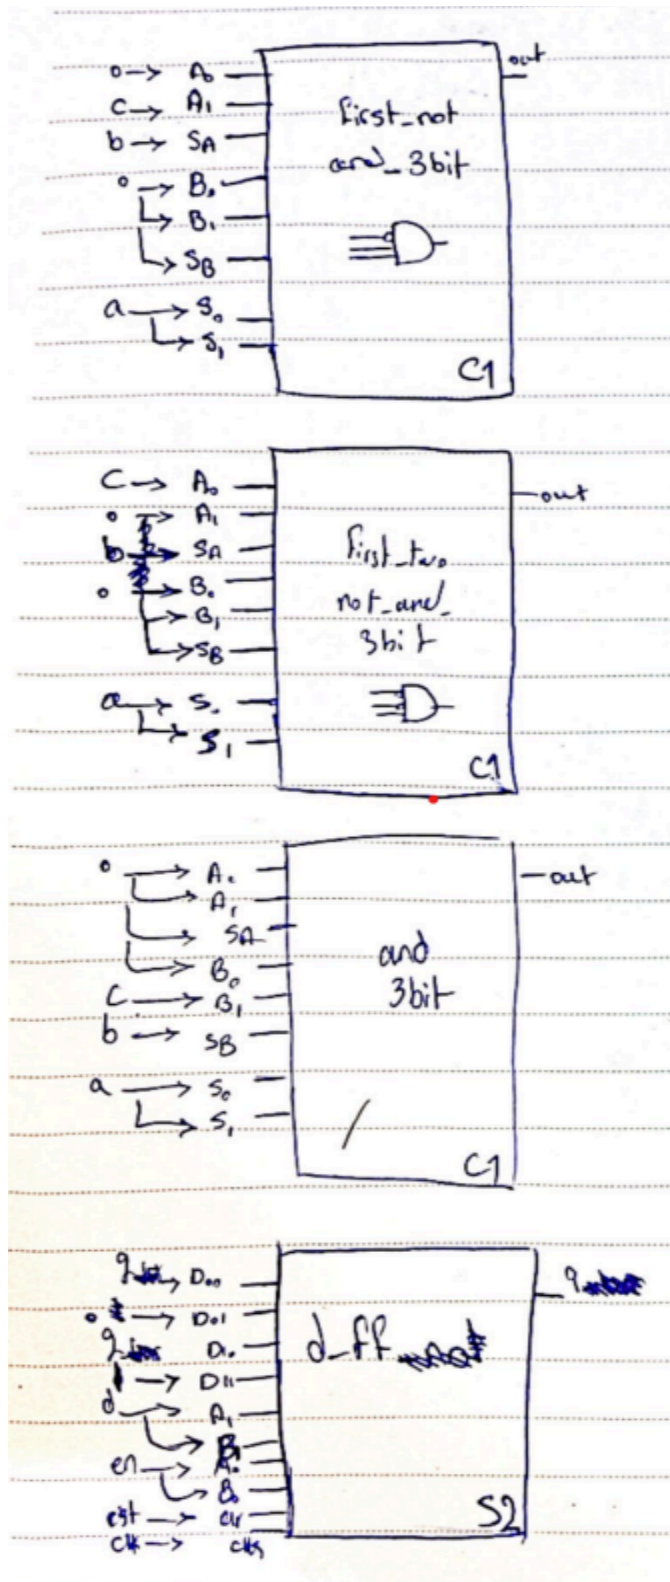 0 → A0
C → A1
b → SA
0 → B0
B1
SB
a → S0
S1
first_not
and_3bit
C1
out
C → A0
0 → A1
b → SA
0 → B0
B1
SB
a → S0
S1
first_two
not_and_
3bit
C1
out
0 → A0
A1
SA
B0
C → B1
b → SB
a → S0
S1
and
3bit
C1
out
q → D00
0 D01
q D10
1 → D11
d → A1
B1
en → A0
B0
→ clr
clk → clk
d_ff
S2
q